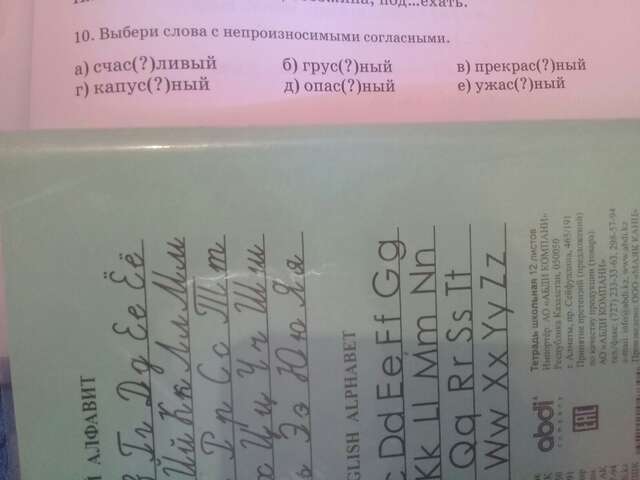 под...ехать.
10. Выбери слова с непроизносимыми согласными.
а) счас(?)ливый б) грус(?)ный в) прекрас(?)ный
г) капус(?)ный д) опас(?)ный е) ужас(?)ный
АЛФАВИТ
Гг Дд Ее Ёё
Йй Кк Лл Мм
Рр Сс Тт
Цц Чч Шш
Ээ Юю Яя
ENGLISH ALPHABET
Dd Ee Ff Gg
Kk Ll Mm Nn
Qq Rr Ss Tt
Ww Xx Yy Zz
abdi
COMPANY
EAC
Тетрадь школьная 12 листов
Импортер: АО «АБДИ КОМПАНИ»
Республика Казахстан, 050050
г. Алматы, пр. Сейфуллина, 465/191
Принятие претензий (предложений)
по качеству продукции (товара):
АО «АБДИ КОМПАНИ»
тел./факс: (727) 233-33-63, 298-57-94
e-mail: info@abdi.kz, www.abdi.kz